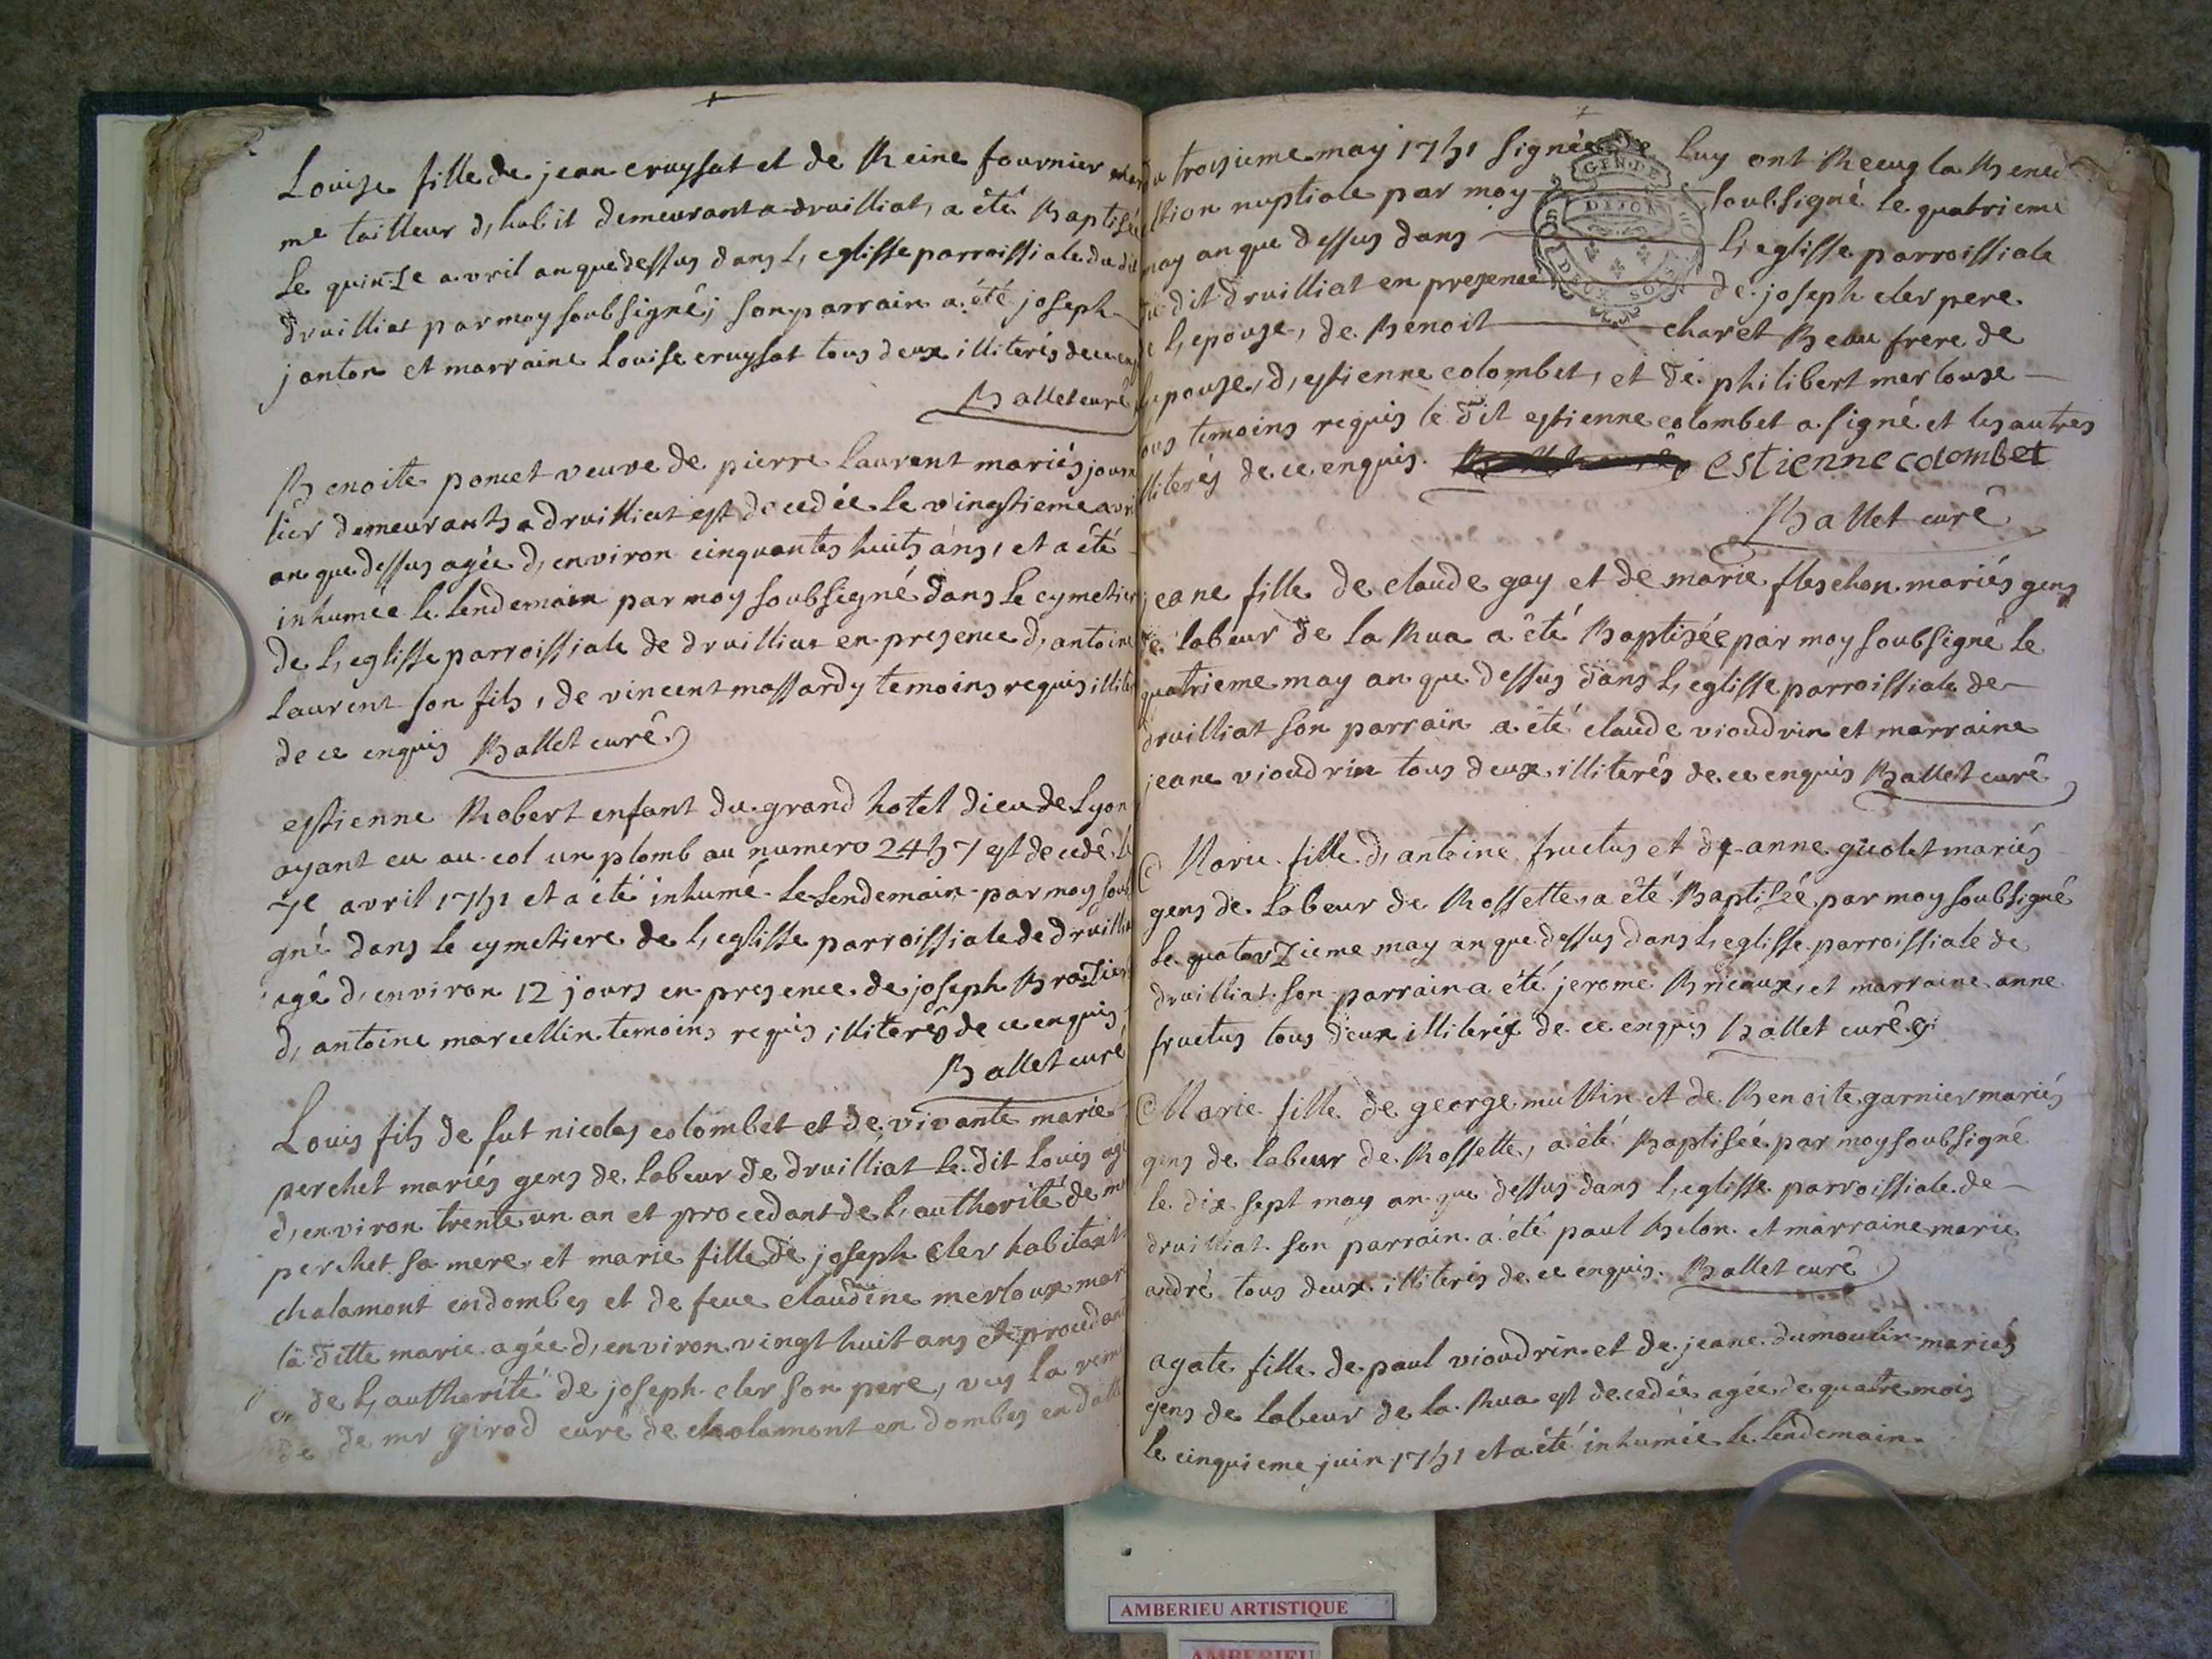 Louise fille de jean cruysat et de Reine fournier
me tailleur d, habit demeurant a druilliat, a été Baptisée
le quinze avril an que dessus dans l, eglisse parroissiale du dit
druilliat par moy soubsigné; son parrain a été joseph
janton et marraine Louise cruysat tous deux illiterés de ce enquis
Ballet curé
Benoite poncet veuve de pierre laurent mariés journ
lier demeurants a druilliat est decedée le vingtieme avril
an que dessus agée d, environ cinquantes huits ans, et a été
inhumée le lendemain par moy soubsigné dans le cymetiere
de l, eglisse parroissiale de druilliat en presence d, antoine
laurent son fils, de vincent massardy temoins requis illiterés
de ce enquis Ballet curé
estienne Robert enfant du grand hotel dieu de Lyon
ayant eu au col un plomb au numero 2457 est decedé le
7e avril 1751 et a été inhumé le lendemain par moy soubsi
gné dans le cymetiere de l, eglisse parroissiale de druilliat
agé d, environ 12 jours en presence de joseph Brazier
d, antoine marcellin temoins requis illiterés de ce enquis
Ballet curé
Louis fils de fut nicolas colombet et de vivante marie
perchet mariés gens de labeur de druilliat le dit louis agé
d, environ trente un an et procedant de l, authorité de
perchet sa mere, et marie fille de joseph cler habitant
chalamont en dombes et de feue claudine merloux
la ditte marie agée d, environ vingt huit ans et procedant
de l, authorité de joseph cler son pere, vus la remi
de de mr girod curé de chalamont en dombes en datte
du troisieme may 1751 signée de luy ont Receus la Bened
iction nuptiale par moy soubsigné le quatrieme
may an que dessus dans l, eglisse parroissiale
du dit druilliat en presence de joseph cler pere
de l, epouse, de Benoit charet Beau frere de
l, epouse, d, estienne colombet, et de philibert merlouse
tous temoins requis le dit estienne colombet a signé et les autres
illiterés de ce enquis. estienne colombet
Ballet curé
GEN. DE
DIJON
DEUX SOLS
jeane fille de claude gay et de marie fleschon mariés gens
de labeur de la Rua a été Baptisée par moy soubsigné le
quatrieme may an que dessus dans l, eglisse parroissiale de
druilliat son parrain a été claude vioudrin et marraine
jeane vioudrin tous deux illiterés de ce enquis Ballet curé
Marie fille d, antoine fructus et d, anne guolet mariés
gens de labeur de Rossette, a été Baptisée par moy soubsigné
le quatorzieme may an que dessus dans l, eglisse parroissiale de
druilliat son parrain a été jerome Bricaux, et marraine anne
fructus tous deux illiterés de ce enquis Ballet curé
Marie fille de george multin et de Benoite garnier mariés
gens de labeur de Rossette, a été Baptisée par moy soubsigné
le dix sept may an que dessus dans l, eglisse parroissiale de
druilliat son parrain a été paul Belon et marraine marie
andré tous deux illiterés de ce enquis. Ballet curé
agate fille de paul vioudrin et de jeane dumoulin mariés
gens de labeur de la Rua est decedée agée de quatre mois
le cinquieme juin 1751 et a été inhumée le lendemain
AMBERIEU ARTISTIQUE
AMBERIEU